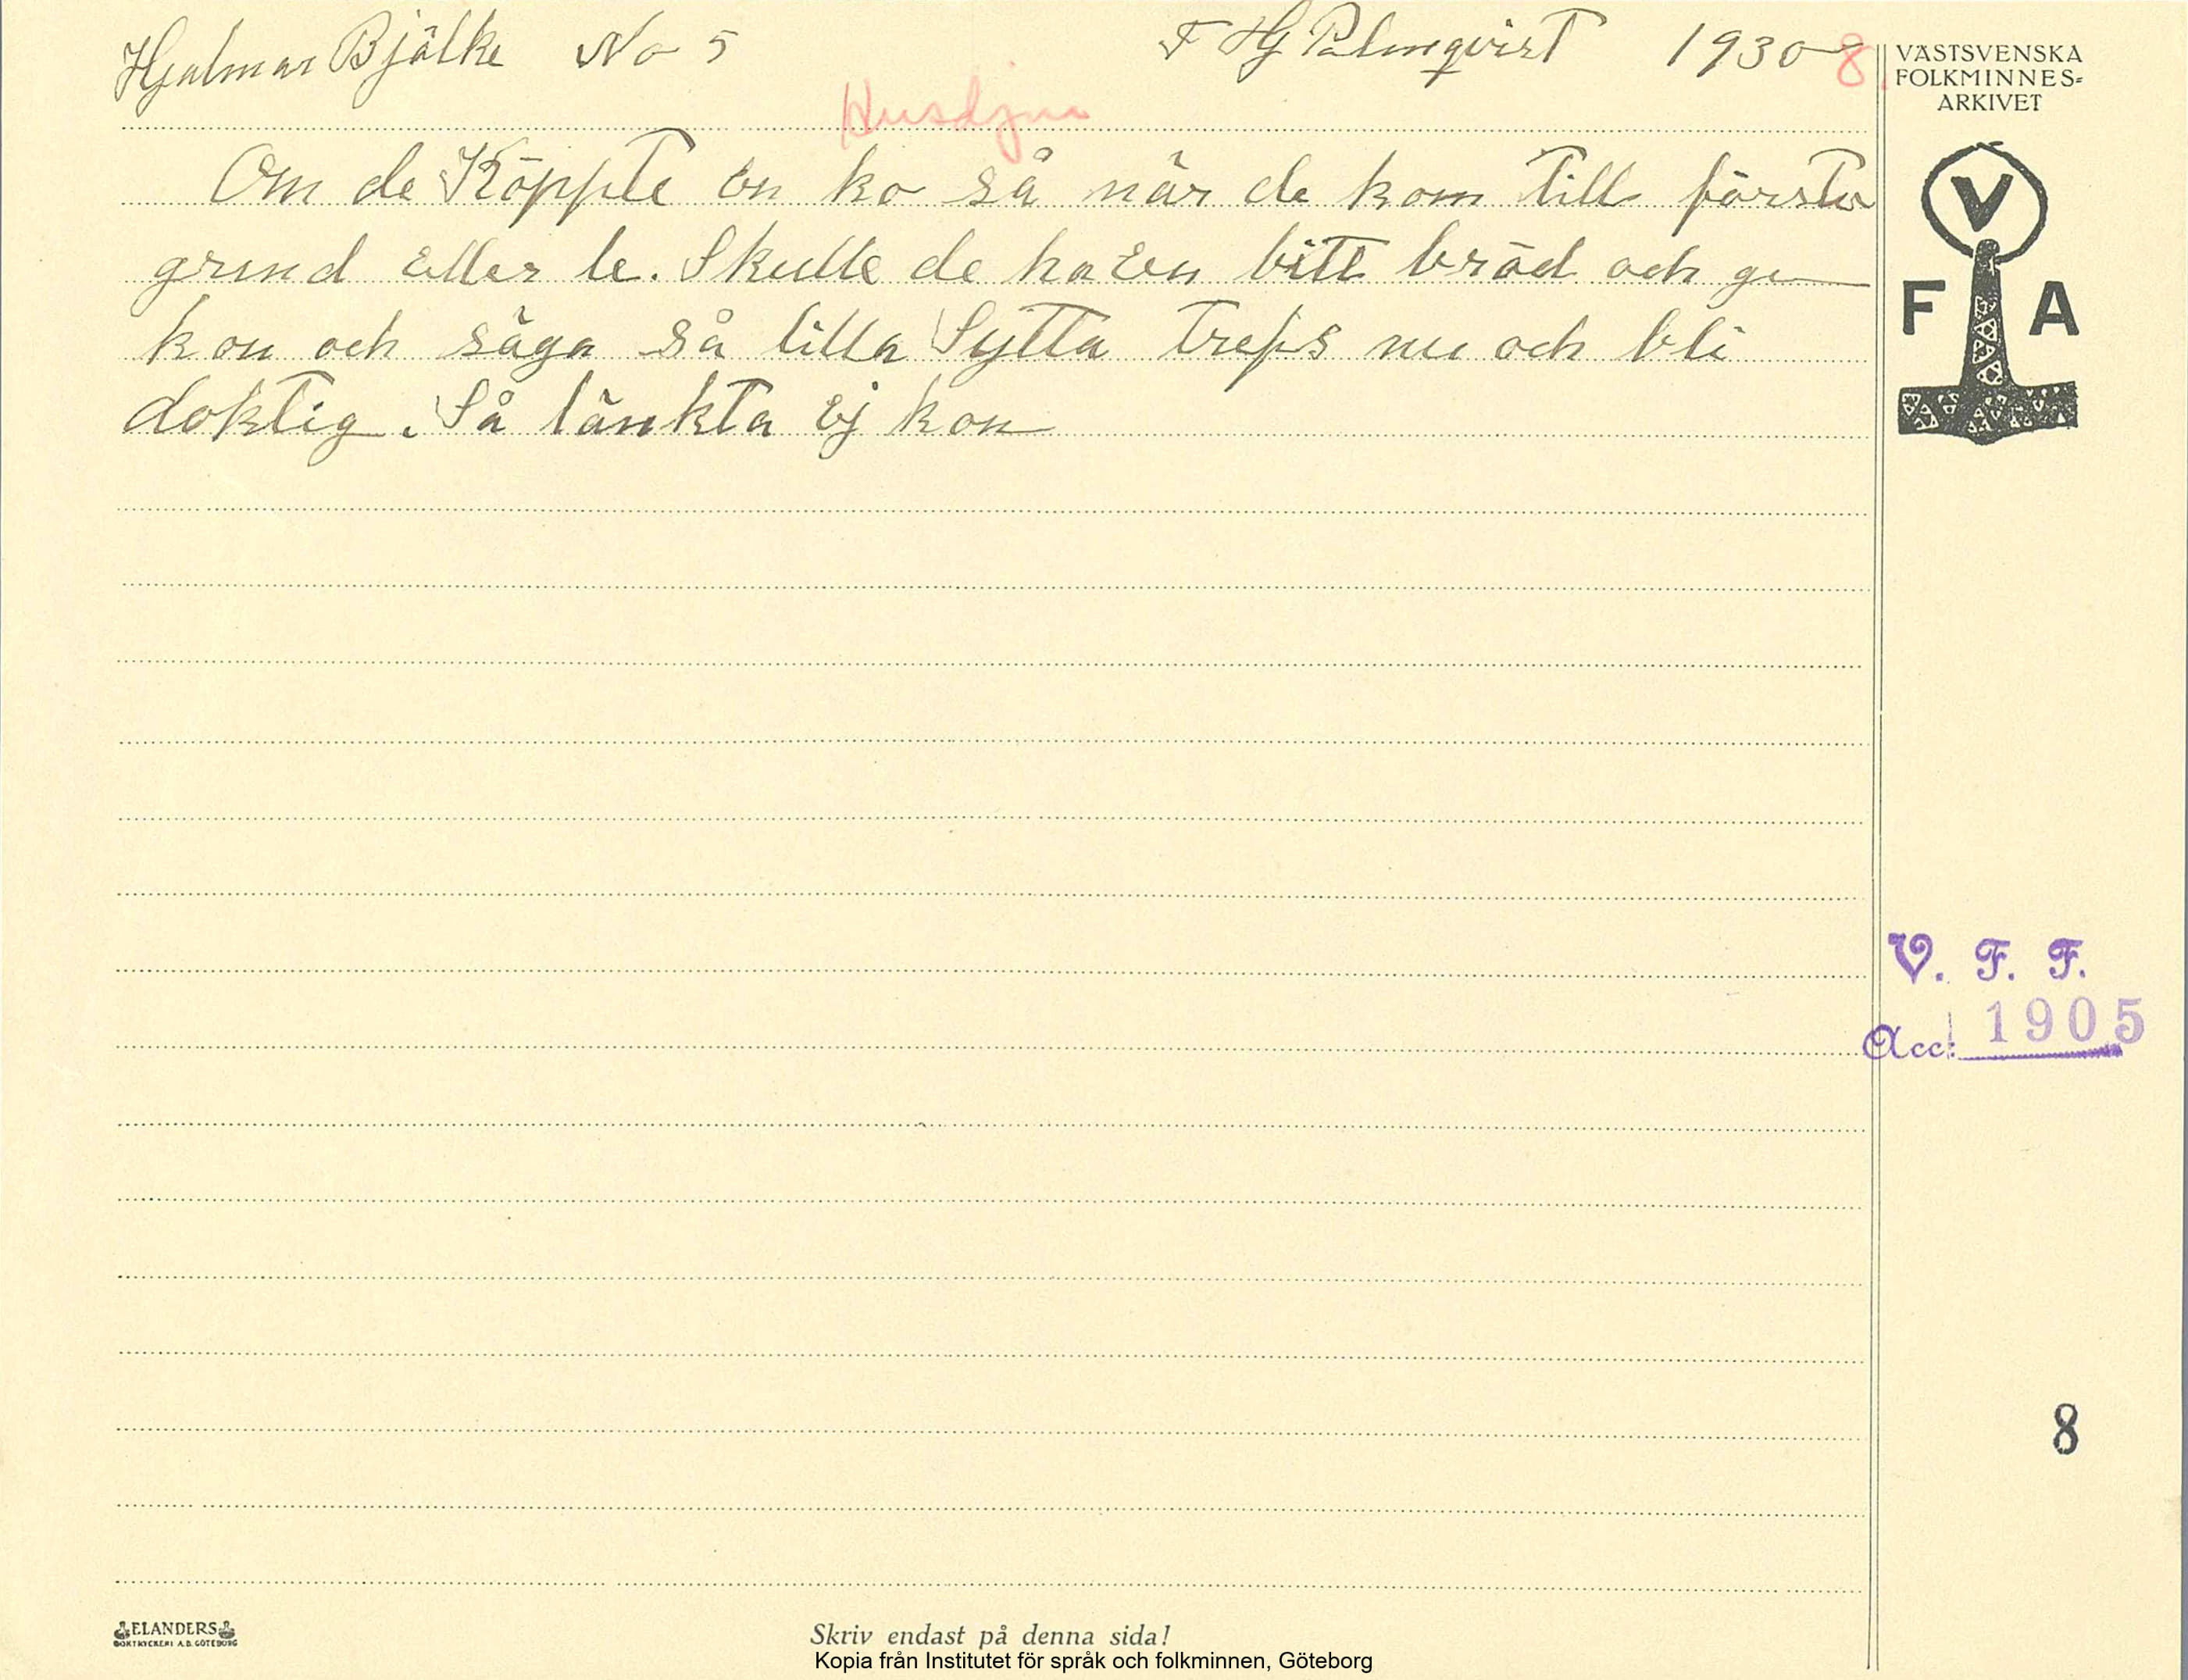 Hjalmar Bjälke No 5 F Hj Palmqvist 1930 8.
VÄSTSVENSKA
FOLKMINNES-
ARKIVET
Husdjur
Om de Köppte en ko så när de kom till första
grind eller le. Skulle de ha en bitt bröd och ge
kon och säga så lilla Sytta trefs nu och bli
doktig. Så länkta ej kon
V
F A
V. F. F.
Acc: 1905
8
ELANDERS
BOKTRYCKERI A.B. GÖTEBORG
Skriv endast på denna sida!
Kopia från Institutet för språk och folkminnen, Göteborg